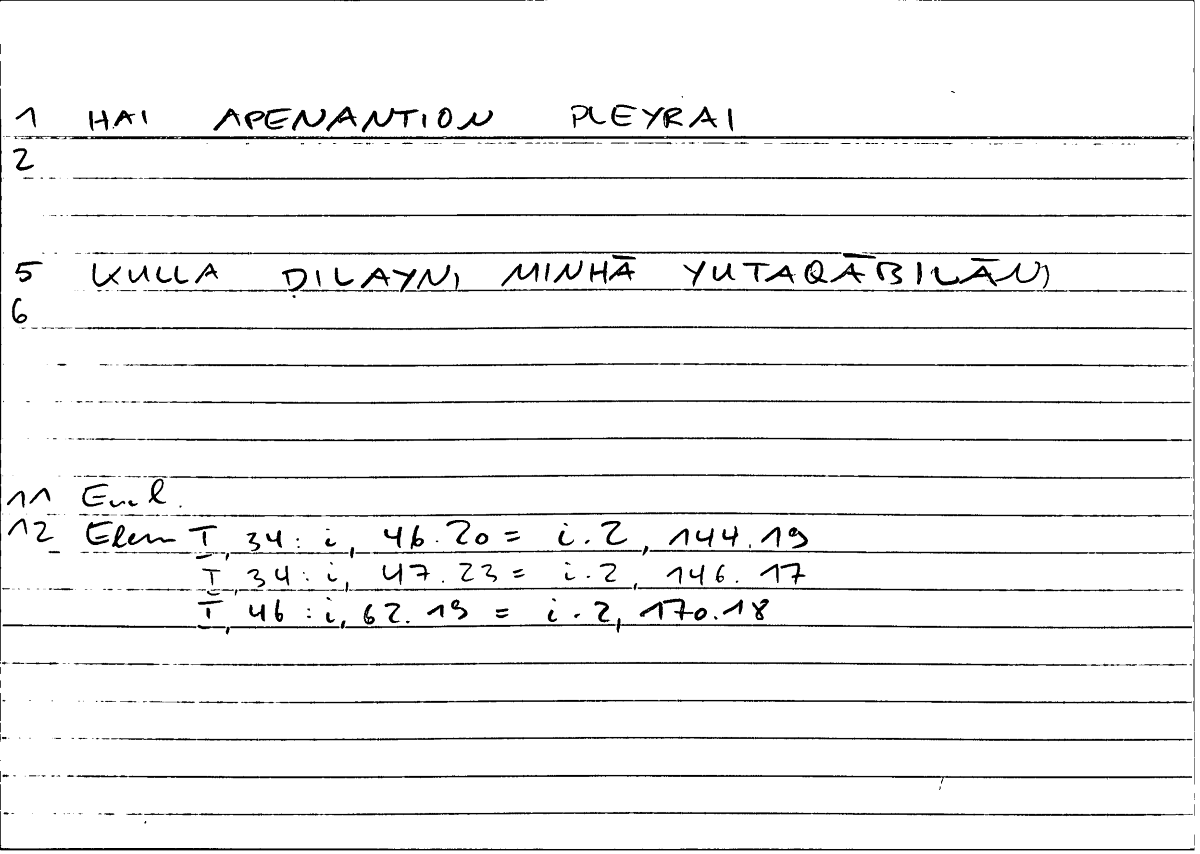 1 HAI APENANTION PLEYRAI
2
5 KULLA ḌILAYNI MINHĀ YUTAQĀBILĀNI
6
11 Eucl.
12 Elem I, 34: i, 46.20 = i.2, 144.19
I, 34: i, 47.23 = i.2, 146.17
I, 46: i, 62.19 = i.2, 170.18